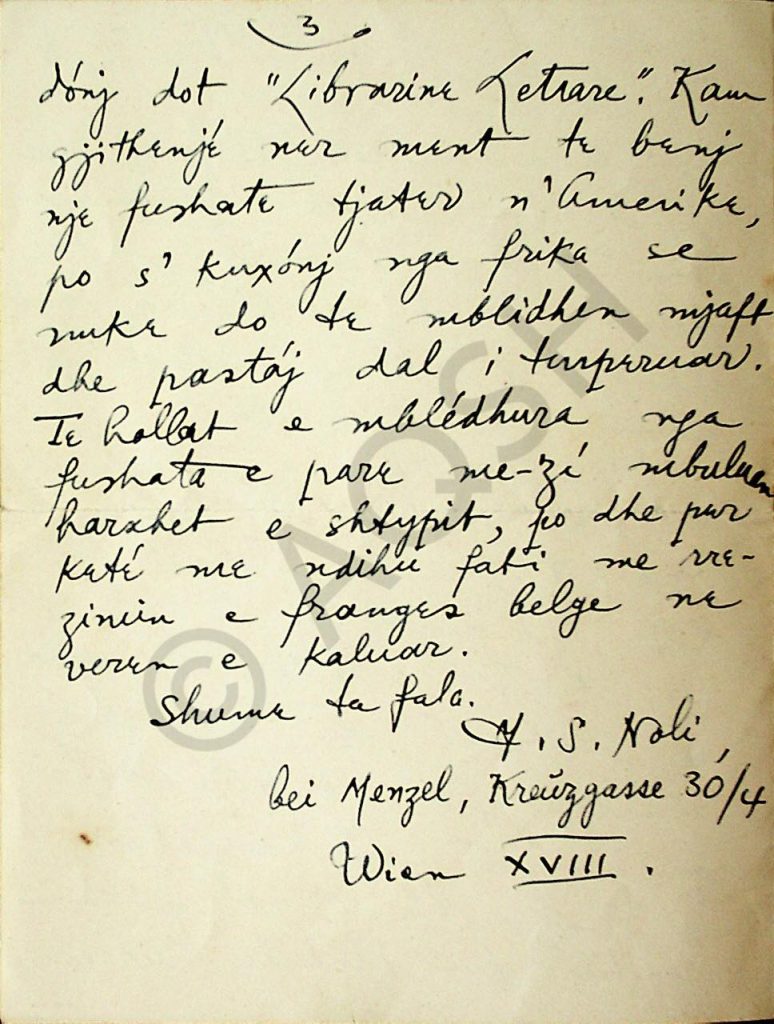 3
dónj dot "Librarine Letrare". Kam
gjithenjé ner ment te benj
nje fushate tjater n'Amerike,
po s' kuxónj nga frika se
nuke do te mblidhen mjaft
dhe pastáj dal i turperuar.
Te hollat e mblédhura nga
fushata e pare me-zí mbuluan
harxhet e shtypit, po dhe per
keté me ndihu fati me rre-
zimin e franges belge ne
veren e kaluar.
Shume te fala.
F. S. Noli,
bei Menzel, Kreuzgasse 30/4
Wien XVIII.
© AQSH